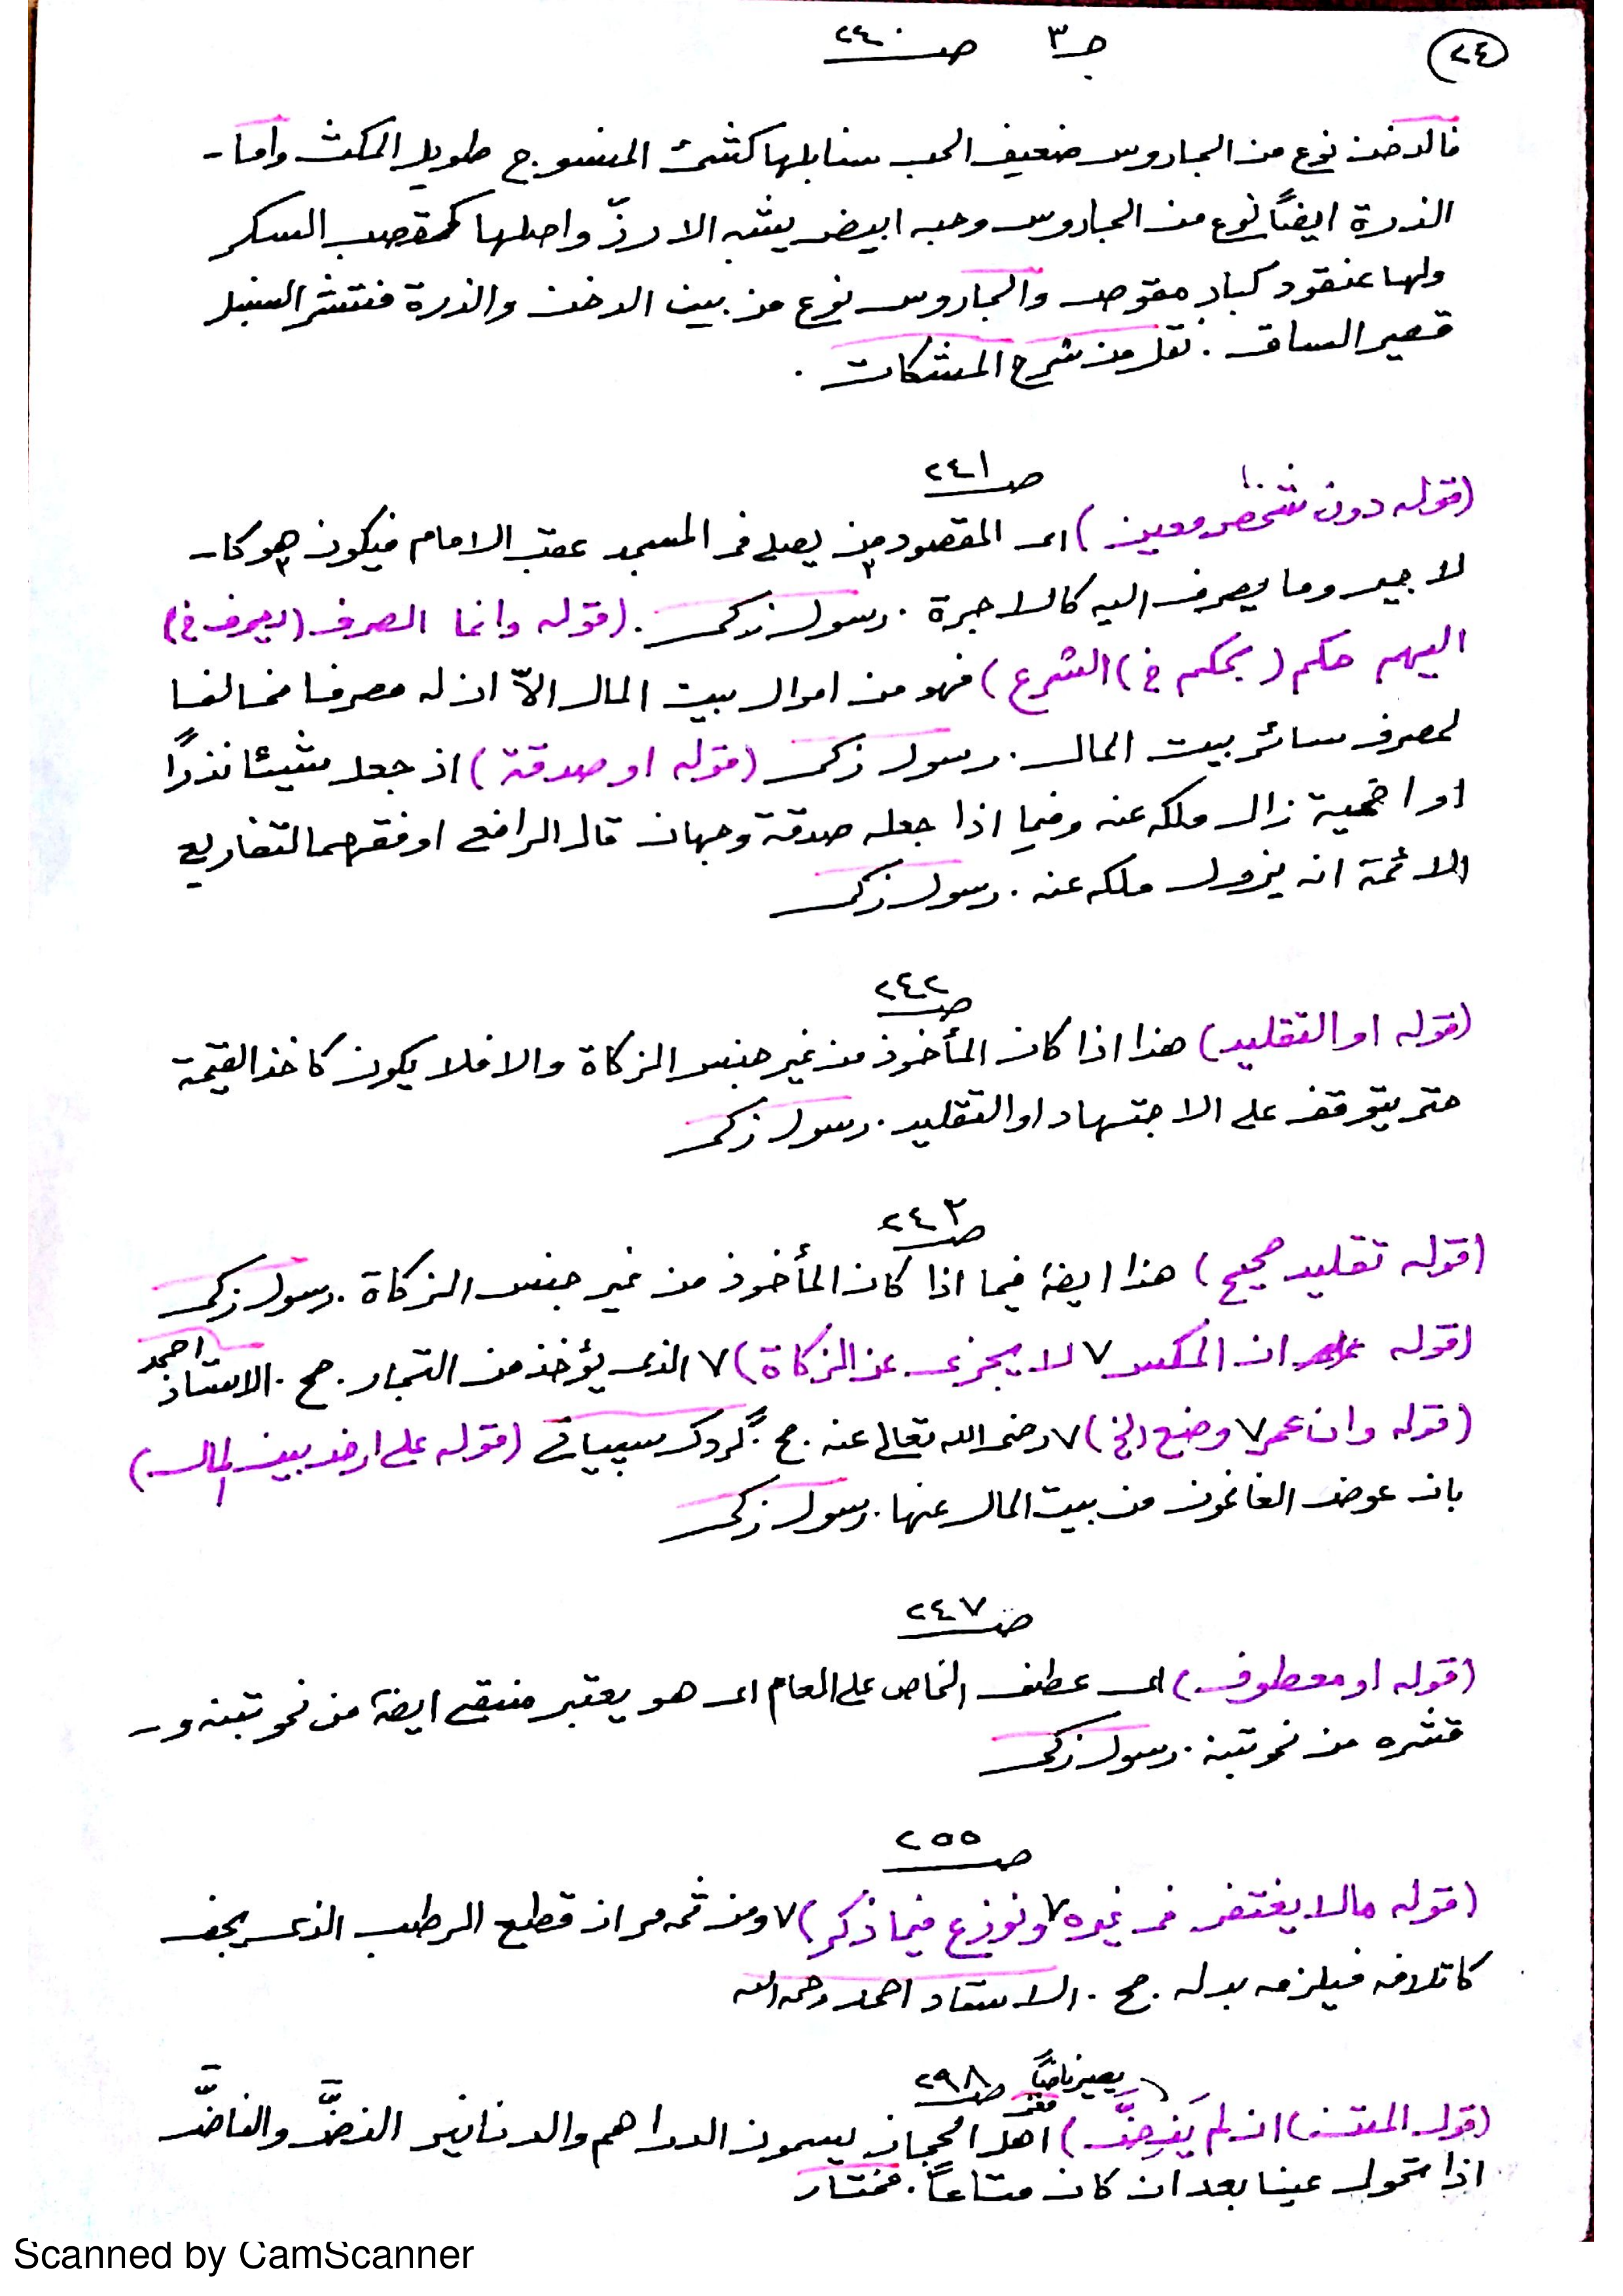 ٢٤
جـ ٣ صـ ٢٤٠
فالدخن نوع من الجاروس ضعيف الحب سنابلها كشئ المنسوج طويل المكث واما -
الذرة ايضاً نوع من الجاروس وحبه ابيض يشبه الارزّ واصلها كقصب السكر
ولها عنقود كبار مقوص والجاروس نوع من بين الدخن والذرة فتنثر السنبل
قصير الساق . نقل من شرح المشكات .
صـ ٢٤١
(قوله دون شخص معين) اى المقصود من يصلى فى المسجد عقب الامام فيكون هو كا -
لاجير وما يصرف اليه كالاجرة . رسول زكى . (قوله وانما الصرف (يصرف خ)
اليهم حكم (بحكم خ) الشرع) فهو من اموال بيت المال الاّ ان له مصرفا مخالفا
لمصرف سائر بيت المال . رسول زكى (قوله او صدقة) اذ جعل شيئا نذرًا
او اضحية زال ملكه عنه وفيما اذا جعله صدقة وجهان قال الرافعى اوفقهما لتفاريع
الائمة انه يزول ملكه عنه . رسول زكى
صـ ٢٤٢
(قوله او التقليد) هذا اذا كان المأخوذ من غير جنس الزكاة والا فلا يكون كاخذ القيمة
حتى يتوقف على الاجتهاد او التقليد . رسول زكى
صـ ٢٤٣
(قوله تقليد صحيح) هذا ايضا فيما اذا كان المأخوذ من غير جنس الزكاة . رسول زكى
(قوله على ان المكس ٧ لا يجزى عن الزكاة) ٧ الذى يؤخذ من التجار . صح . الاستاذ احمد
(قوله وان عمر ٧ وضع الخ) ٧ رضى الله تعالى عنه . صح . گروك سپياتى (قوله على ارض بيت المال)
بان عوض الغانمون من بيت المال عنها . رسول زكى
صـ ٢٤٧
(قوله او معطوف) اى عطف الخاص على العام اى هو يعتبر منقى ايضا من نحو تبنه و -
قشره من نحو تبنه . رسول زكى
صـ ٢٥٥
(قوله مالا يغتفر فى غيره ٧ ونوزع فيما ذكر) ٧ ومن ثمه مر ان قطع الرطب الذى يجف
كاتلافه فيلزمه بدله . صح . الاستاد احمد رحمه الله
يصير ناضاً صـ ٢٩٨
(قول المتن ان لم يَنِضَّ) اهل الحجاز يسمون الدراهم والدنانير النضّ والناضّ
اذا تحول عينا بعد ان كان متاعاً . مختار
Scanned by CamScanner